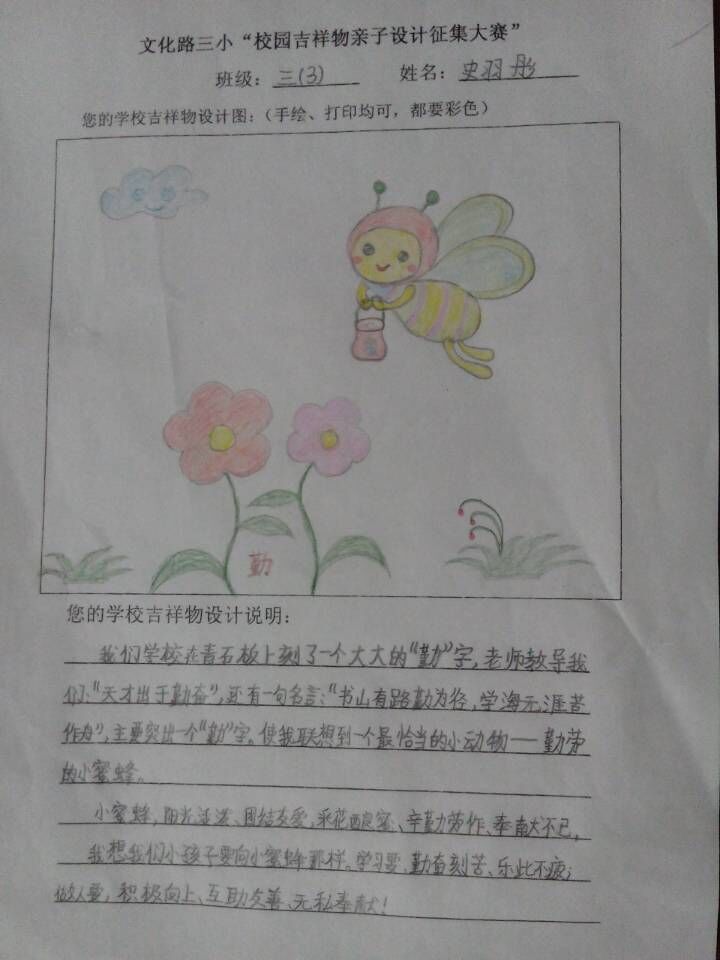 文化路三小“校园吉祥物亲子设计征集大赛”
班级：三(3) 姓名：史羽彤
您的学校吉祥物设计图：（手绘、打印均可，都要彩色）
勤
您的学校吉祥物设计说明：
我们学校在青石板上刻了一个大大的“勤”字，老师教导我
们：“天才出于勤奋”，还有一句名言：“书山有路勤为径，学海无涯苦
作舟”，主要突出一个“勤”字。使我联想到一个最恰当的小动物——勤劳
的小蜜蜂。
小蜜蜂，阳光活泼、团结友爱，采花酿蜜、辛勤劳作、奉献不已，
我想我们小孩子要向小蜜蜂那样。学习要，勤奋刻苦、乐此不疲；
做人要，积极向上、互助友善、无私奉献！